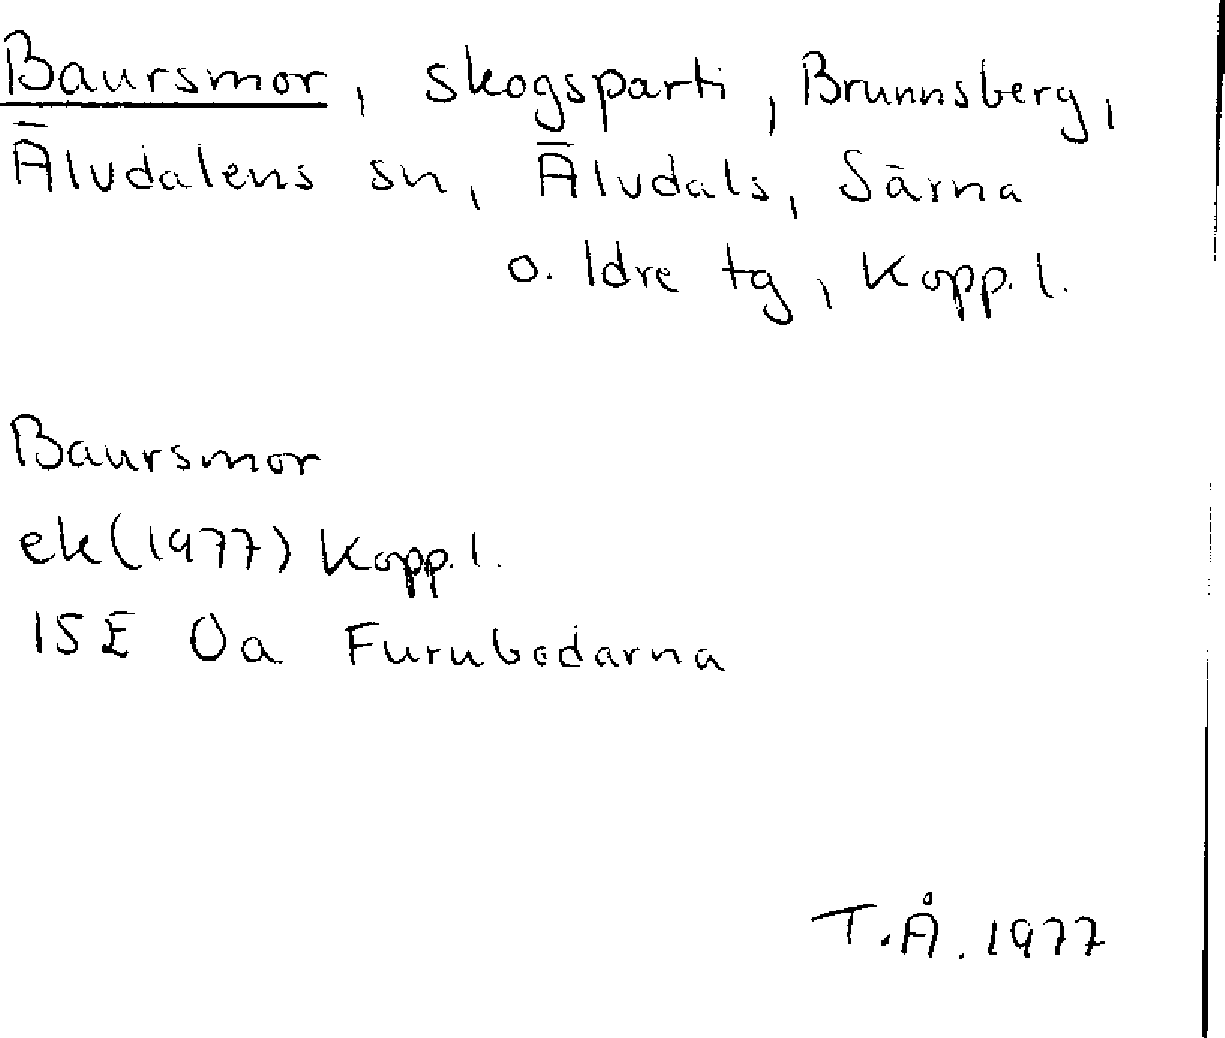 Baursmor, skogsparti, Brunnsberg,
Älvdalens sn, Älvdals, Särna
o. Idre tg, Kopp. l.
Baursmor
ek (1977) Kopp. l.
15E 0a Furubodarna
T.Å. 1977